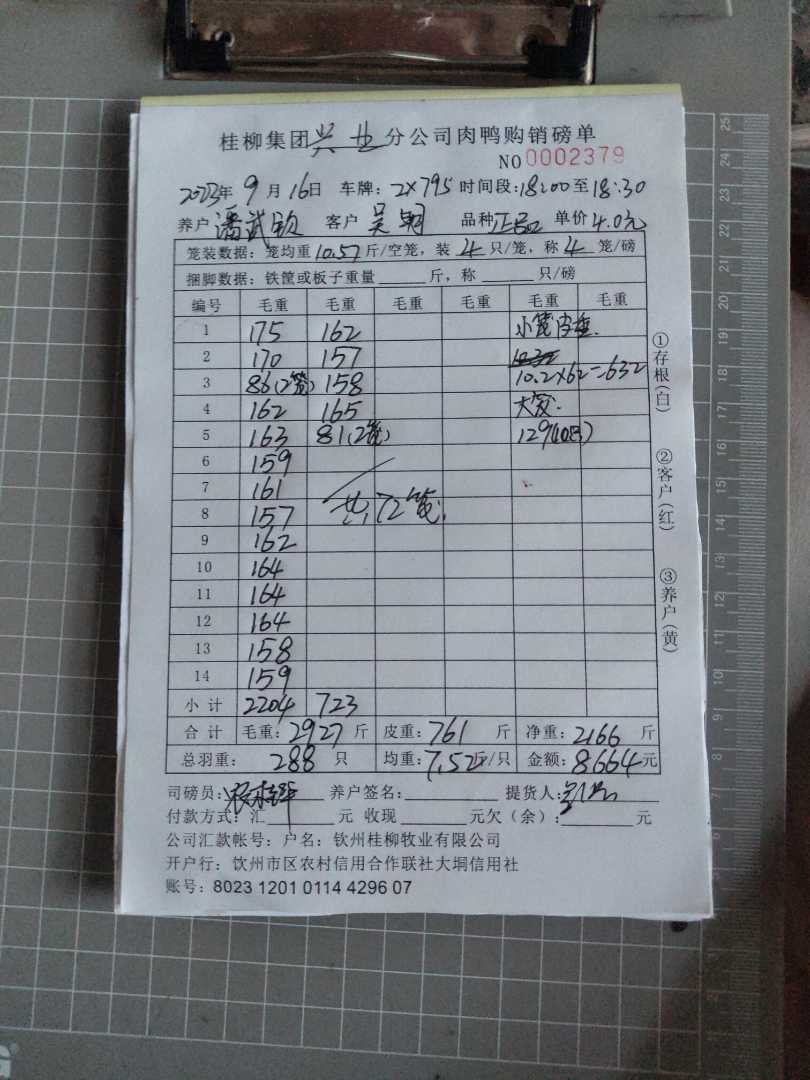 桂柳集团兴业分公司肉鸭购销磅单
NO 0002379
2023年 9 月 16日 车牌: 2X795 时间段:18:00至18:30
养户 潘武钦 客户 吴明 品种 正品 单价 4.0元
笼装数据: 笼均重 10.57 斤/空笼, 装 4 只/笼, 称 4 笼/磅
捆脚数据: 铁筐或板子重量 斤, 称 只/磅
编号 毛重 毛重 毛重 毛重 毛重 毛重
1 175 162 小笼皮重.
2 170 157
3 86(2笼) 158 10.2×62=632
4 162 165 大笼.
5 163 81(2笼) 129(10只)
6 159
7 161
8 157 共72笼.
9 162
10 164
11 164
12 164
13 158
14 159
小计 2204 723
合计 毛重: 2927 斤 皮重: 761 斤 净重: 2166 斤
总羽重: 288 只 均重: 7.52斤/只 金额: 8664元
司磅员: 养户签名: 提货人:
付款方式: 汇 元 收现 元欠(余): 元
公司汇款帐号: 户名: 钦州桂柳牧业有限公司
开户行: 饮州市区农村信用合作联社大垌信用社
账号: 8023 1201 0114 4296 07
①存根(白)
②客户(红)
③养户(黄)
25
23
22
21
20
19
18
17
16
15
14
13
12
11
10
9
8
7
6
5
4
3
2
1